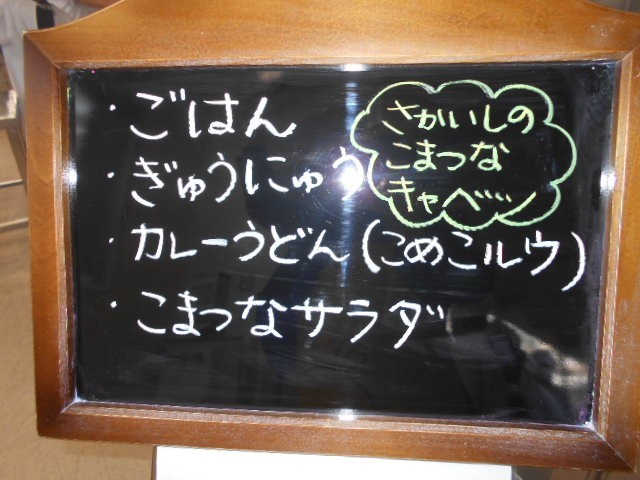 ・ごはん
・ぎゅうにゅう
・カレーうどん(こめこルウ)
・こまつなサラダ
さかいしの
こまつな
キャベツ